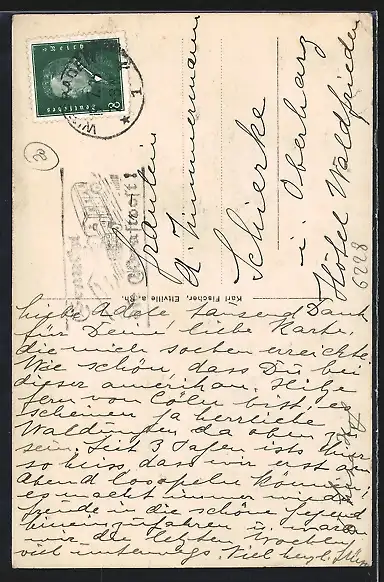 Fräulein
A. Zimmermann
Schierke
i. Oberharz
Hôtel Waldfrieden
Karl Fischer, Eltville a. Rh.
6228
Liebe Adele, tausend Dank
für Deine liebe Karte,
die mich soeben erreichte.
Wie schön, dass Du bei
dieser amerikan. Hitze
fern von Cöln bist, es
scheinen ja herrliche
Waldungen da oben zu
sein. Seit 3 Tagen ists hier
so heiss, dass wir erst am
Abend losgehen können,
es macht immer wieder
Freude in die schöne Gegend
hineinzufahren u. waren
wir die letzten Wochen
viel unterwegs. Viel herzl.